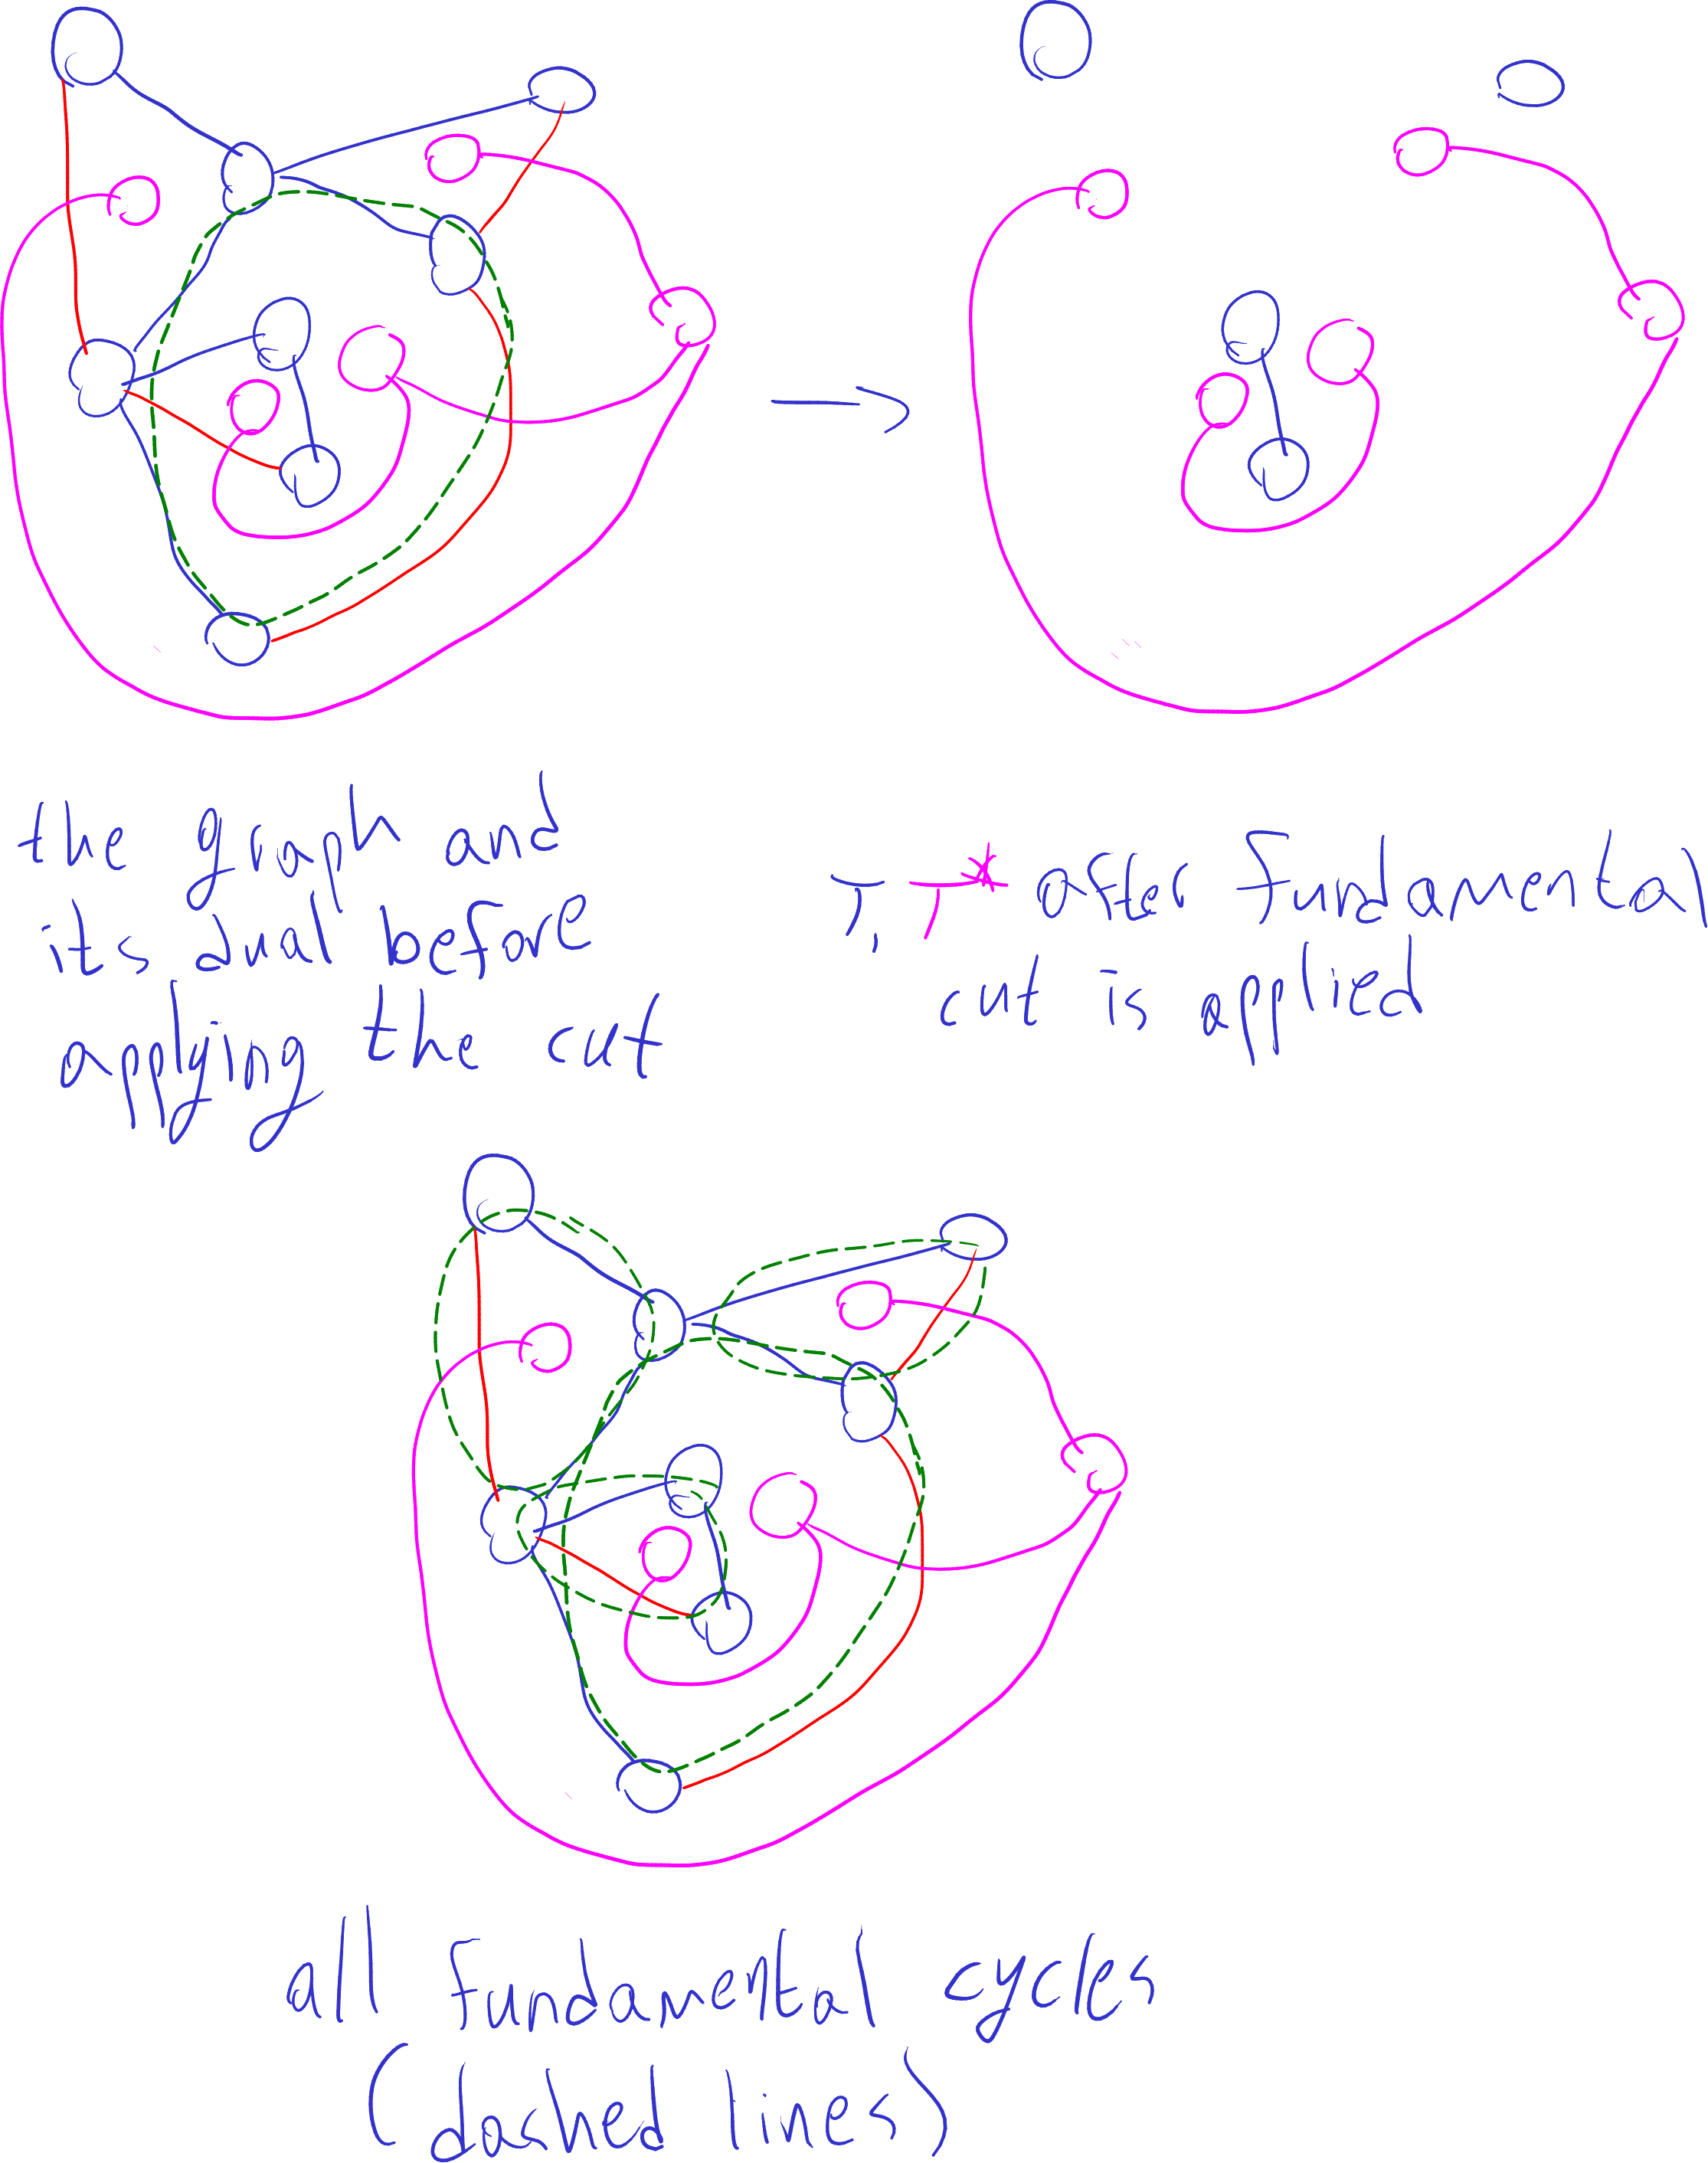 the graph and
its dual before
applying the cut
T, T* after fundamental
cut is applied
all fundamental cycles
(dashed lines)